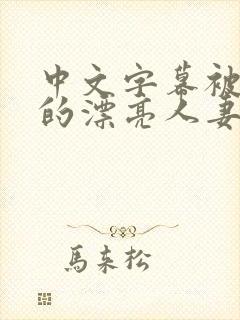 中文字幕被
的漂亮人妻
馬来松